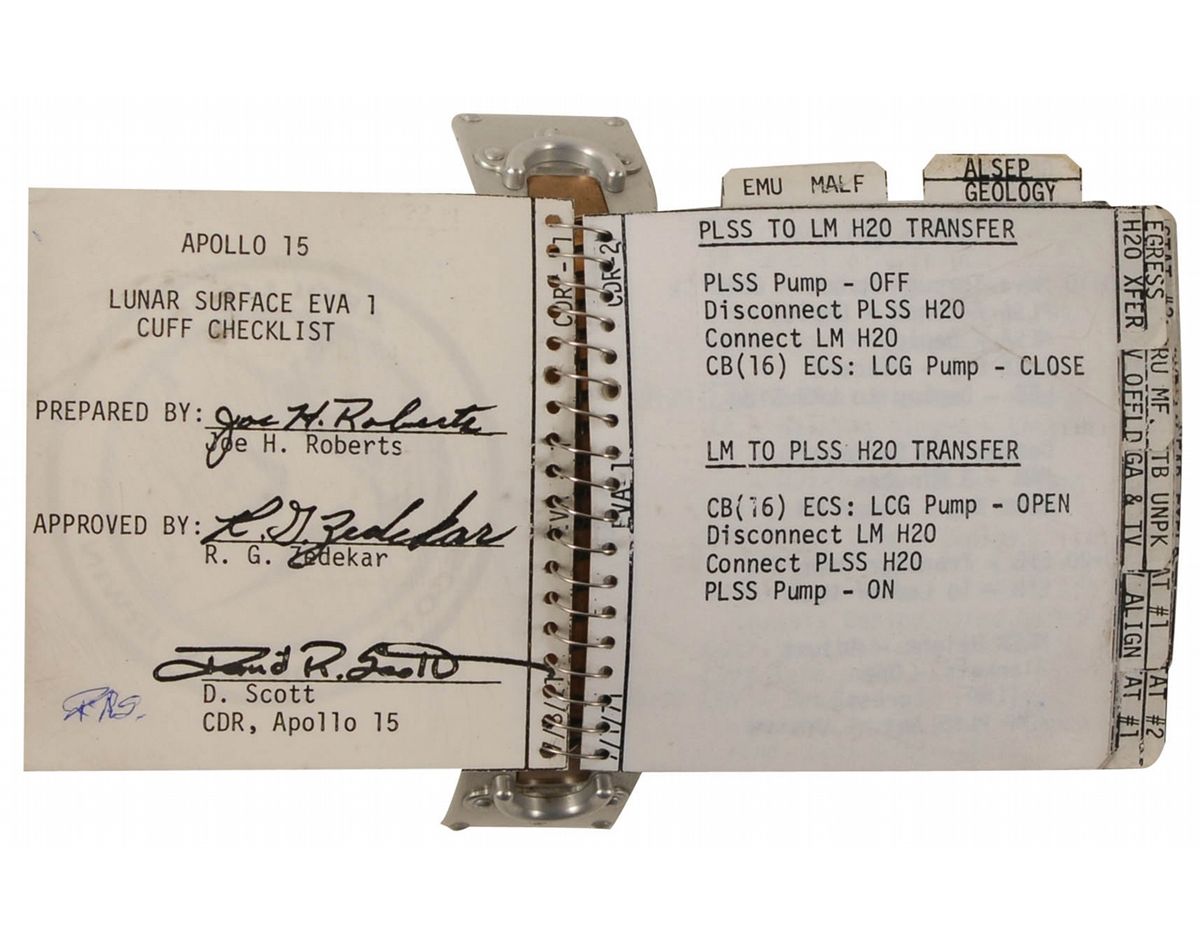 APOLLO 15
LUNAR SURFACE EVA 1
CUFF CHECKLIST
PREPARED BY: Joe H. Roberts
Joe H. Roberts
APPROVED BY: R. G. Zedekar
R. G. Zedekar
David R. Scott
D. Scott
CDR, Apollo 15
CDR-1
CDR-2
EVA-1
EMU MALF
ALSEP
GEOLOGY
PLSS TO LM H2O TRANSFER
PLSS Pump - OFF
Disconnect PLSS H2O
Connect LM H2O
CB(16) ECS: LCG Pump - CLOSE
LM TO PLSS H2O TRANSFER
CB(16) ECS: LCG Pump - OPEN
Disconnect LM H2O
Connect PLSS H2O
PLSS Pump - ON
H2O XFER
EGRESS
GA & TV
TB UNPK
ALIGN
AT #1
AT #1
AT #2